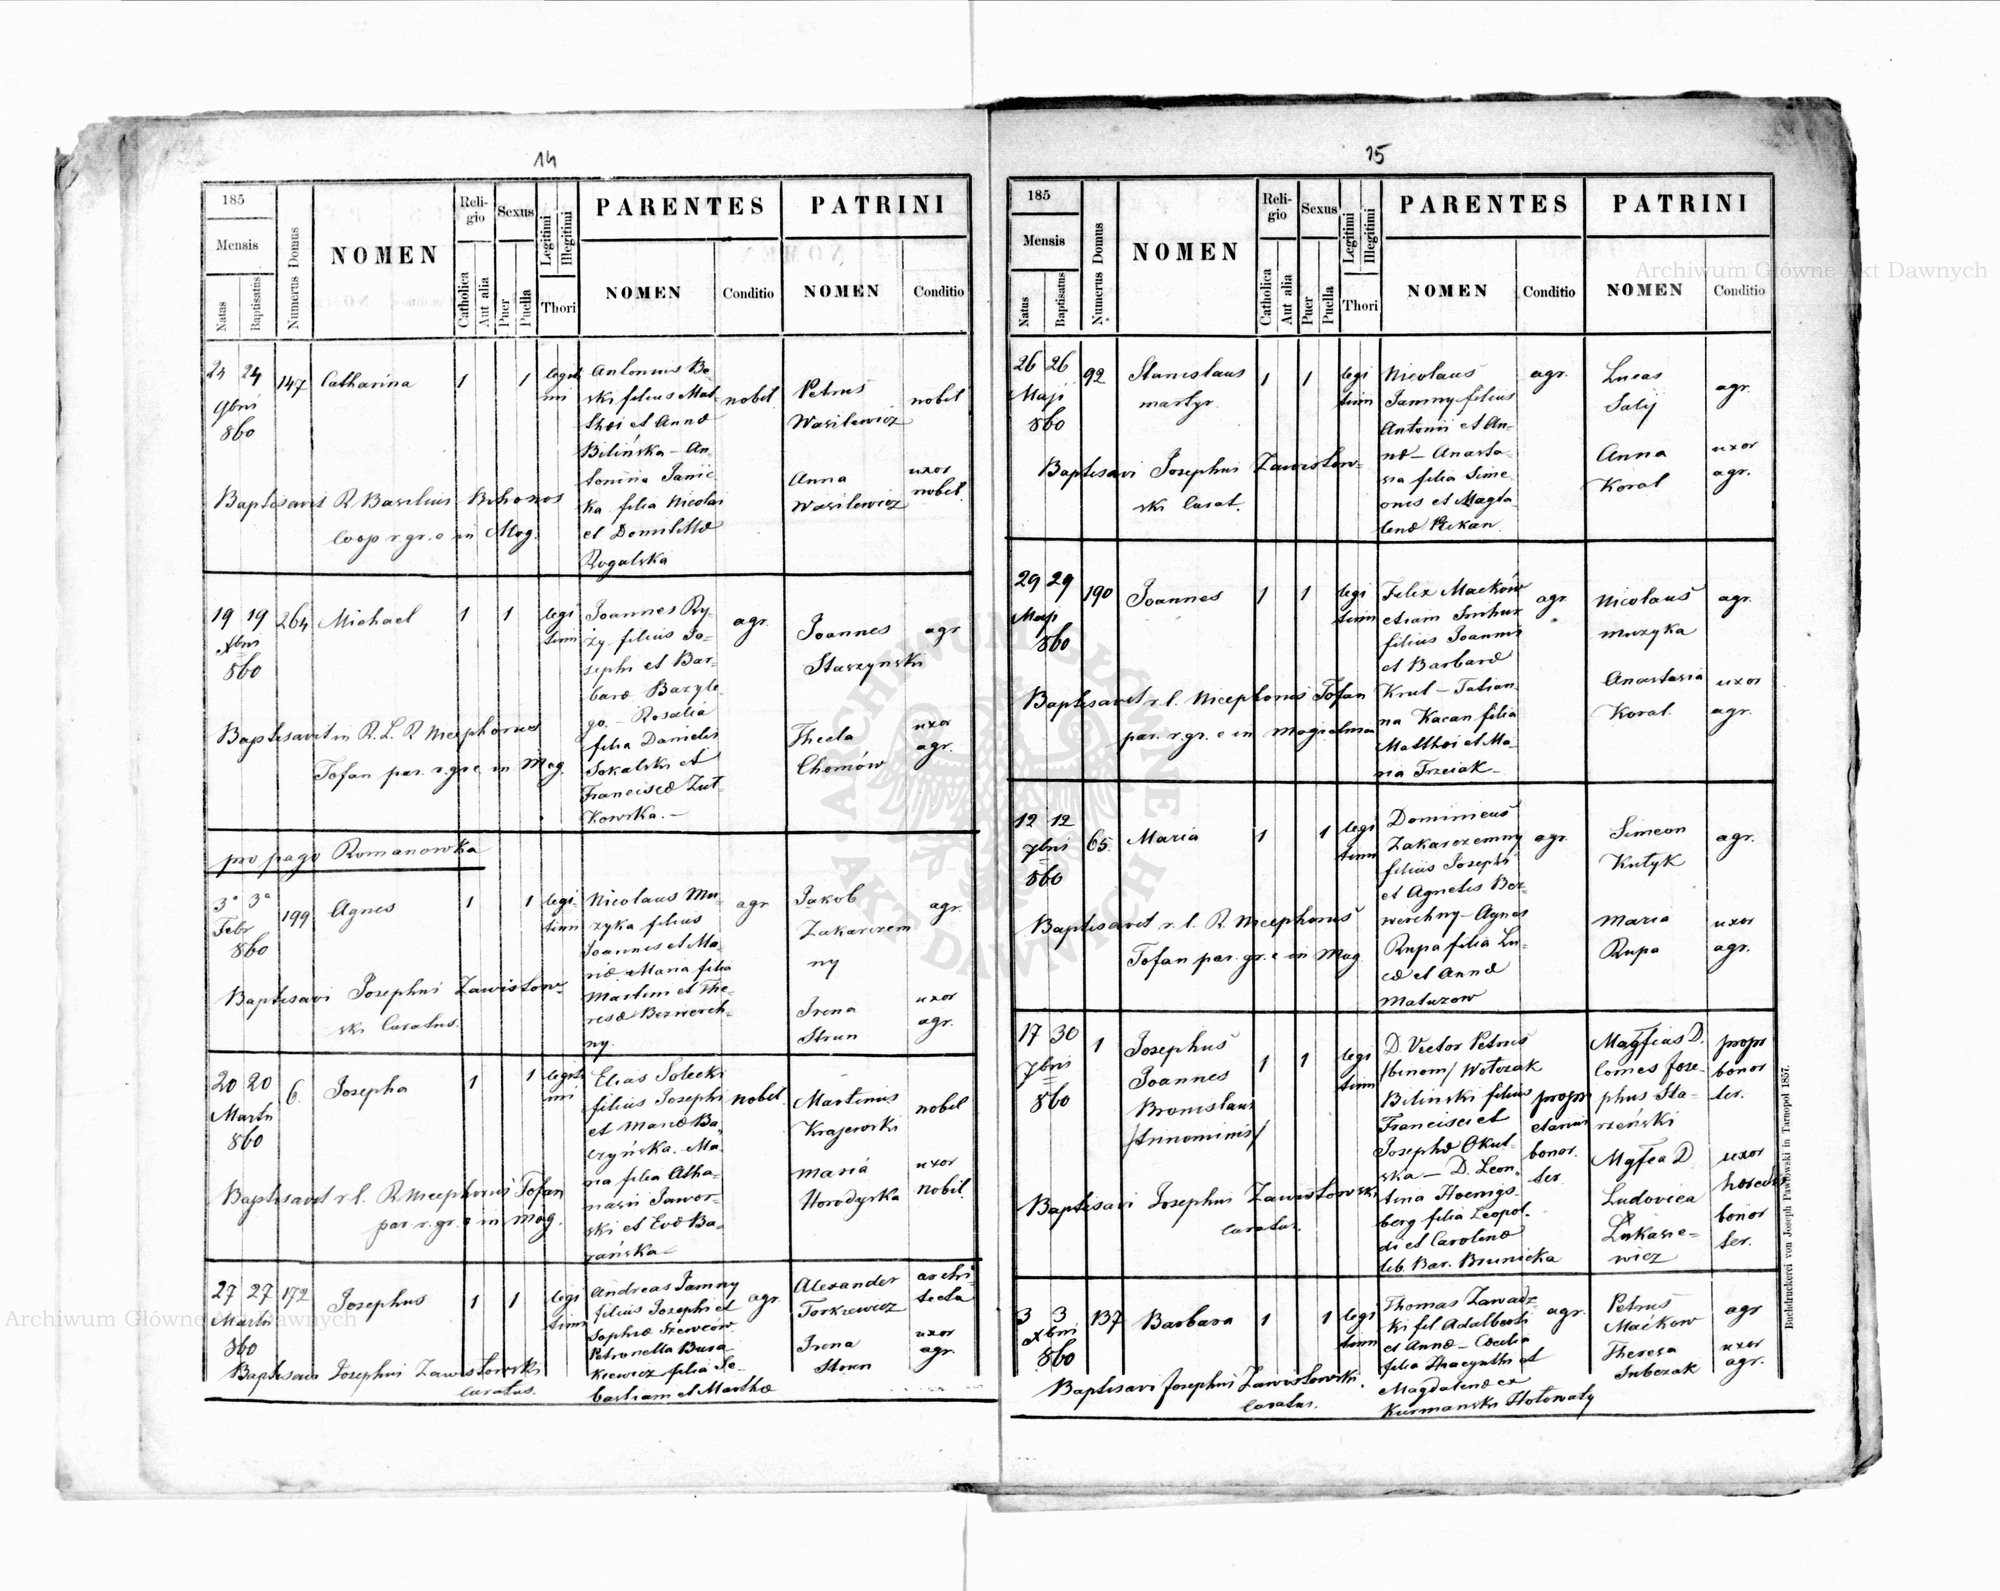 14
185
Mensis
Natus
Baptisatus
Numerus Domus
NOMEN
Reli-
gio
Catholica
Aut alia
Sexus
Puer
Puella
Legitimi
Illegitimi
Thori
PARENTES
NOMEN
Conditio
PATRINI
NOMEN
Conditio
24 24
9bris
860
147
Catharina
1
1
legiti
mi
Antonius Be
ski filius Mat
thei et Annae
Bilińska – An
tonina Janic
ka filia Nicolai
et Domicellae
Rogalska
nobil
Petrus
Wasilewicz
nobil
Anna
Wasilewicz
uxor
nobil
Baptisavit R Basilius Bohonos
coop r. gr. c in Mog.
19 19
xbris
860
264
Michael
1
1
legi
timi
Joannes Ry
zy. filius Jo-
sephi et Bar-
barae Bazyle
go. – Rosalia
filia Danielis
Sokalski et
Franciscae Zut
kowska. –
agr.
Joannes
Staszynski
agr
Thecla
Chomów
uxor
agr.
Baptisavit in R. L. R Nicephorus
Tofan par. r. gr. c in Mog.
pro pago Romanowka
3a 3a
Febr
860
199
Agnes
1
1
legi
timi
Nicolaus Mu-
zyka filius
Joannis et Ma-
riae Maria filia
Martini et The-
resae Bezwerch-
ny.
agr
Jakob
Zakarczem
ny
agr.
Irena
Strun
uxor
agr.
Baptisavi Josephus Zawistow-
ski Curatus
20 20
Martii
860
6
Josepha
1
1
legiti
mi
Elias Solecki
filius Josephi
et Mariae Ba-
czyńska. Ma-
ria filia Atha-
nasii Jawor-
ski et Evae Ba-
rańska
nobil.
Martinus
Krajewski
nobil
Maria
Horodyska
uxor
nobil
Baptisavit r. l. R Nicephorus Tofan
par r. gr. c in Mog.
27 27
Martii
860
172
Josephus
1
1
legi
timi
Andreas Jamny
filius Josephi et
Sophiae Szewców
Petronella Bura
kiewicz filia Se-
bastiani et Marthae
agr.
Alexander
Torkiewicz
archi
tecta
Irena
Strun
uxor
agr.
Baptisavi Josephus Zawistowski
Curatus.
15
185
Mensis
Natus
Baptisatus
Numerus Domus
NOMEN
Reli-
gio
Catholica
Aut alia
Sexus
Puer
Puella
Legitimi
Illegitimi
Thori
PARENTES
NOMEN
Conditio
PATRINI
NOMEN
Conditio
26 26
Maji
860
92
Stanislaus
martyr
1
1
legi
timi
Nicolaus
Jamny filius
Antonii et An-
nae – Anasta-
sia filia Sime
onis et Magda
lenae Rekan
agr.
Lucas
Salij
agr.
Anna
Koral
uxor
agr.
Baptisavi Josephus Zawistow-
ski Curat.
29 29
Maji
860
190
Joannes
1
1
legi
timi
Felix Maćków
etiam Smhur
filius Joannis
et Barbarae
Krul – Tatian
na Kacan filia
Matthei et Ma-
ria Trzciak –
agr
Nicolaus
Muzyka
agr.
Anastasia
Koral.
uxor
agr.
Baptisavit r. l. Nicephorus Tofan
par. r. gr. c in Mogielnica
12 12
7bris
860
65
Maria
1
1
legi
timi
Dominicus
Zakarczemny
filius Josephi
et Agnetis Bez-
werchny – Agnes
Rupa filia Lu-
cae et Annae
Matuzow
agr.
Simeon
Kutyk
agr.
Maria
Rupa
uxor
agr.
Baptisavit r. l. R. Nicephorus
Tofan par. gr. c in Mog
17 30
7bris
860
1
Josephus
Joannes
Bronislaus
/trinominis/
1
1
legi
timi
D. Victor Petrus
/binom/ Wołczak
Bilinski filius
Francisci et
Josephae Okul
ska – D. Leon
tina Hoenigs-
berg filia Leopol-
di et Carolinae
lib. Bar. Brunicka
propri
etarius
bonor.
ter.
Magficus D.
Comes Jose-
phus Sta-
rzeński
propr
bonor
ter.
Mgfca D
Ludovica
Łukasie-
wicz
uxor
haeredis
bonor
ter.
Baptisavi Josephus Zawistowski
Curatus.
3 3
xbris
860
137
Barbara
1
1
legi
timi
Thomas Zawadz-
ki fil Adalberti
et Annae – Caecilia
filia Hyacynthi et
Magdalenae ex
Kurmanski Hołowaty
agr.
Petrus
Maćkow
agr
Theresa
Subczak
uxor
agr.
Baptisavi Josephus Zawistowski.
Curatus.
Buchdruckerei von Joseph Pawłowski in Tarnopol 1857.
Archiwum Główne Akt Dawnych
Archiwum Główne Akt Dawnych
ARCHIWUM GŁÓWNE
AKT DAWNYCH